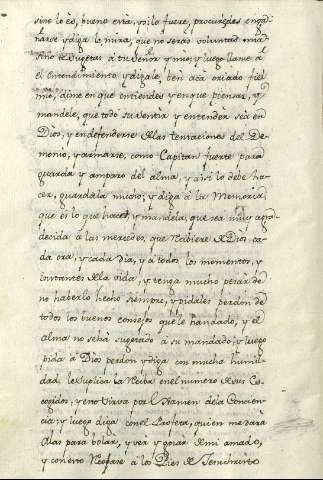 sino lo es, bueno esta, y si lo fuere, procuredes engañ
narse y diga le mira, que no seras voluntad mia
sino te sugetas a tu Señor y mio; y luego llame a
el entendimiento y digale, ben aca criado fiel
mio, dime en que entiendes y en que piensas, y
mandele, que todo su sentir y entender sea en
Dios, y en defenderse de las tentaciones del De-
monio, y armarse, como Capitan fuerte para
guarda y amparo del alma, y asi lo debe ha-
cer, guardala mucho; y diga a la Memoria
que es lo que haces, y mandela, que sea muy agra-
decida a las mercedes, que recibiere de Dios ca-
da ora, y cada dia, y a todos los momentos, y
instantes de la vida, y tenga mucho pesar de
no haberlo hecho siempre, y pidales perdon de
todos los buenos consejos que le han dado, y el
alma no se ha sugetado a su mandado, y luego
pida a Dios perdon y diga con mucha humil
dad le suplica la reciba en el numero de sus Es-
cogidos, y eno sirva por el examen de la Concien-
cia, y luego diga con el Profeta, quien me dara
alas para bolar, y ver y gozar de mi amado,
y con esto repose a los Pies de Jesuchristo